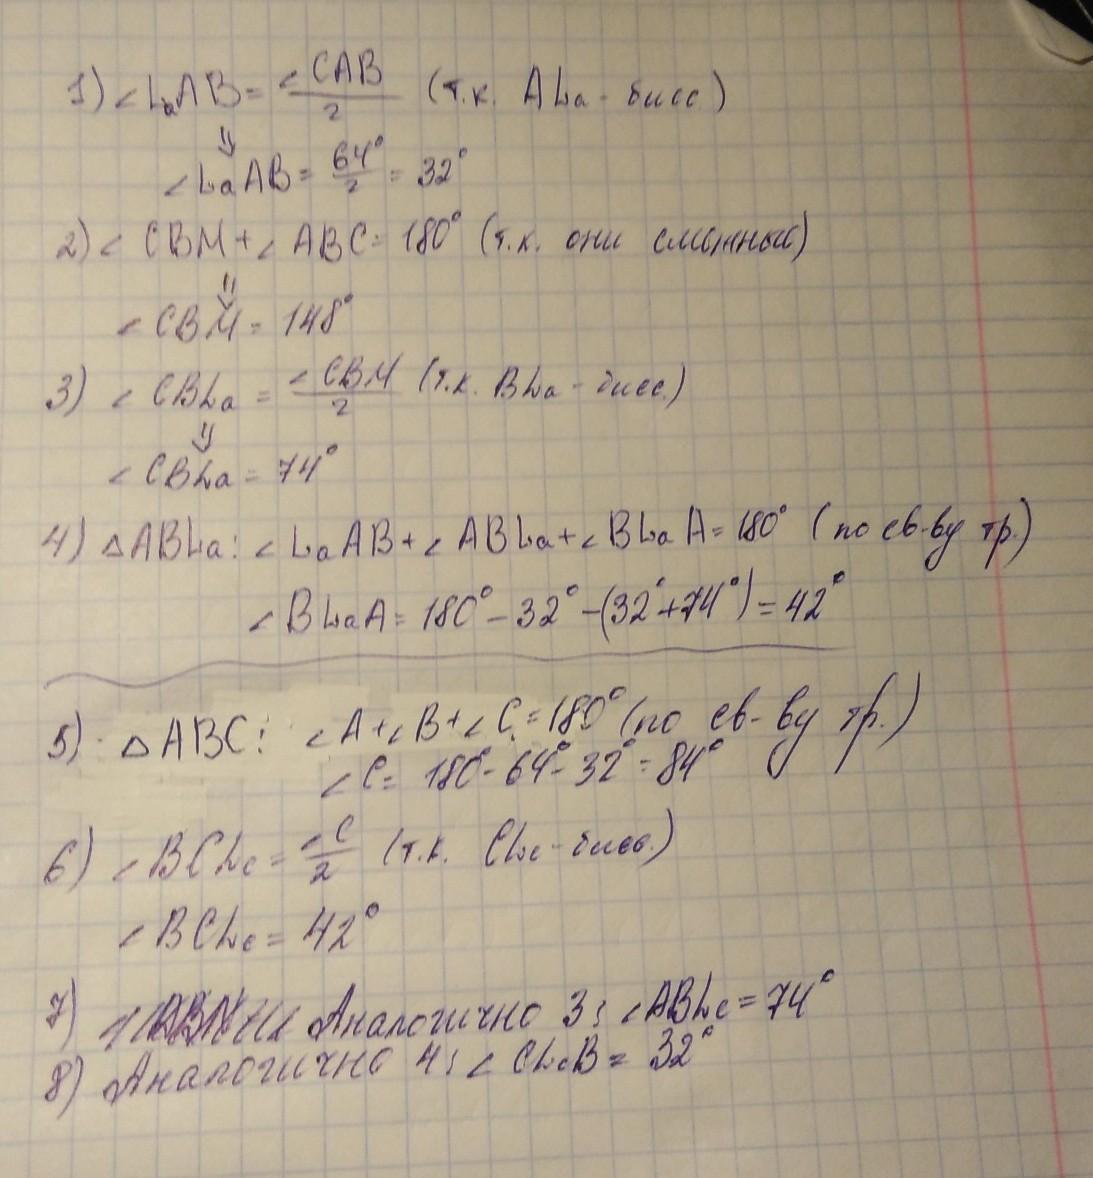 1) ∠LaAB = ∠CAB/2 (т.к. ALa - бисс)
⇓
∠LaAB = 64°/2 = 32°
2) ∠CBM + ∠ABC = 180° (т.к. они смежные)
⇓
∠CBM = 148°
3) ∠CBLa = ∠CBM/2 (т.к. BLa - бисс.)
⇓
∠CBLa = 74°
4) △ABLa: ∠LaAB + ∠ABLa + ∠BLaA = 180° (по св-ву тр.)
∠BLaA = 180° - 32° - (32° + 74°) = 42°
5) △ABC: ∠A + ∠B + ∠C = 180° (по св-ву тр.)
∠C = 180° - 64° - 32° = 84°
6) ∠BCLc = ∠C/2 (т.к. CLc - бисс.)
∠BCLc = 42°
7) Аналогично 3: ∠ABLc = 74°
8) Аналогично 4: ∠CLcB = 32°